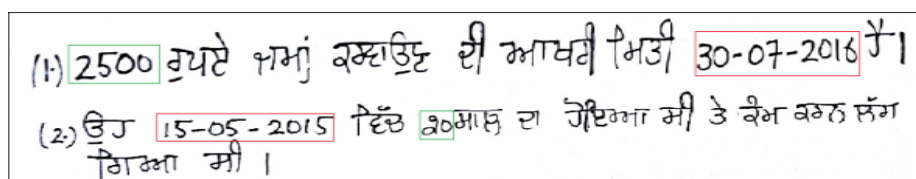 (1.) 2500 ਰੁਪਏ ਜਮਾਂ ਕਰਵਾਉਣ ਦੀ ਆਖਰੀ ਮਿਤੀ 30-07-2016 ਹੈ।
(2.) ਉਹ 15-05-2015 ਵਿੱਚ 20 ਸਾਲ ਦਾ ਹੋਇਆ ਸੀ ਤੇ ਕੰਮ ਕਰਨ ਲੱਗ
ਗਿਆ ਸੀ।